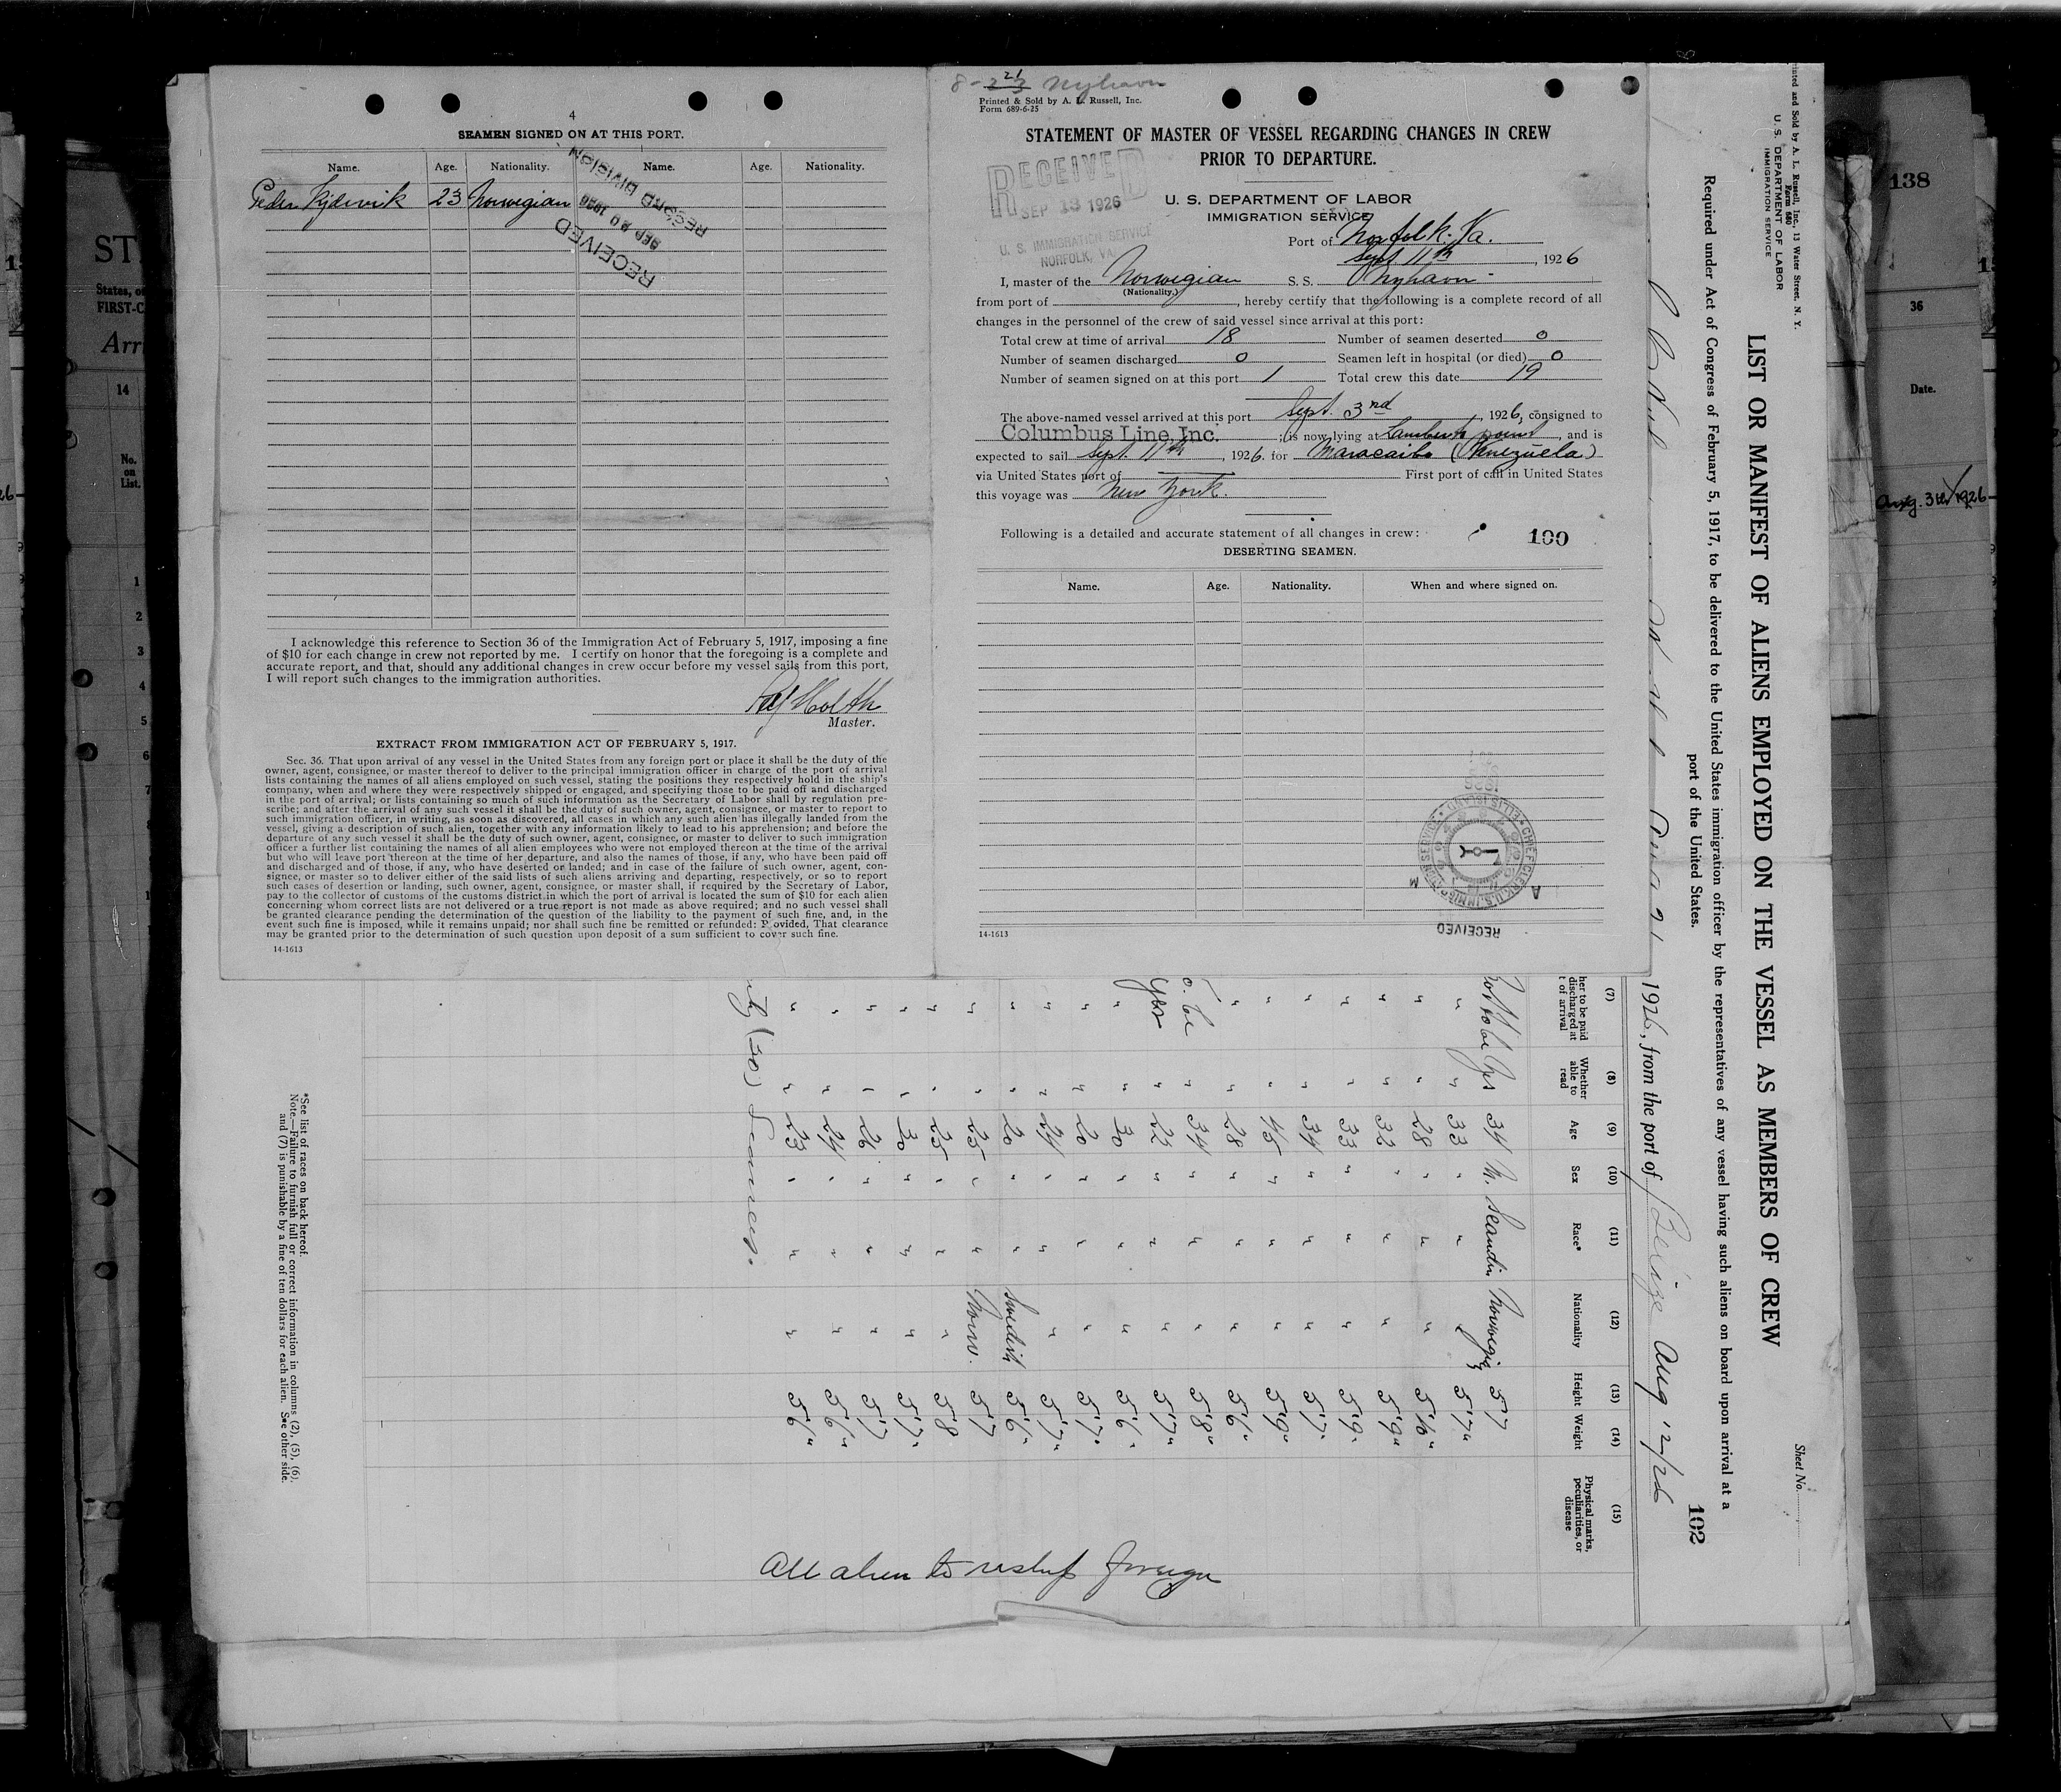 4
SEAMEN SIGNED ON AT THIS PORT.
Name. Age. Nationality. Name. Age. Nationality.
Peder 23 Norwegian
RECEIVED
SEP 20 1926
RECORD DIVISION
I acknowledge this reference to Section 36 of the Immigration Act of February 5, 1917, imposing a fine
of $10 for each change in crew not reported by me. I certify on honor that the foregoing is a complete and
accurate report, and that, should any additional changes in crew occur before my vessel sails from this port,
I will report such changes to the immigration authorities.
Master.
EXTRACT FROM IMMIGRATION ACT OF FEBRUARY 5, 1917.
Sec. 36. That upon arrival of any vessel in the United States from any foreign port or place it shall be the duty of the
owner, agent, consignee, or master thereof to deliver to the principal immigration officer in charge of the port of arrival
lists containing the names of all aliens employed on such vessel, stating the positions they respectively hold in the ship's
company, when and where they were respectively shipped or engaged, and specifying those to be paid off and discharged
in the port of arrival; or lists containing so much of such information as the Secretary of Labor shall by regulation pre-
scribe; and after the arrival of any such vessel it shall be the duty of such owner, agent, consignee, or master to report to
such immigration officer, in writing, as soon as discovered, all cases in which any such alien has illegally landed from the
vessel, giving a description of such alien, together with any information likely to lead to his apprehension; and before the
departure of any such vessel it shall be the duty of such owner, agent, consignee, or master to deliver to such immigration
officer a further list containing the names of all alien employees who were not employed thereon at the time of the arrival
but who will leave port thereon at the time of her departure, and also the names of those, if any, who have been paid off
and discharged and of those, if any, who have deserted or landed; and in case of the failure of such owner, agent, con-
signee, or master so to deliver either of the said lists of such aliens arriving and departing, respectively, or so to report
such cases of desertion or landing, such owner, agent, consignee, or master shall, if required by the Secretary of Labor,
pay to the collector of customs of the customs district in which the port of arrival is located the sum of $10 for each alien
concerning whom correct lists are not delivered or a true report is not made as above required; and no such vessel shall
be granted clearance pending the determination of the question of the liability to the payment of such fine, and, in the
event such fine is imposed, while it remains unpaid; nor shall such fine be remitted or refunded: Provided, That clearance
may be granted prior to the determination of such question upon deposit of a sum sufficient to cover such fine.
14-1613
8-23 21 Nyhavn
Printed & Sold by A. L. Russell, Inc.
Form 689-6-25
STATEMENT OF MASTER OF VESSEL REGARDING CHANGES IN CREW
PRIOR TO DEPARTURE.
RECEIVED
SEP 13 1926
U. S. IMMIGRATION SERVICE
NORFOLK, VA.
U. S. DEPARTMENT OF LABOR
IMMIGRATION SERVICE
Port of Norfolk. Va.
Sept 11th, 1926
I, master of the Norwegian S. S. Nyhavn
(Nationality.)
from port of, hereby certify that the following is a complete record of all
changes in the personnel of the crew of said vessel since arrival at this port:
Total crew at time of arrival 18 Number of seamen deserted 0
Number of seamen discharged 0 Seamen left in hospital (or died) 0
Number of seamen signed on at this port 1 Total crew this date 19
The above-named vessel arrived at this port Sept. 3rd, 1926, consigned to
Columbus Line, Inc. ; is now lying at Lamberts point, and is
expected to sail Sept. 11th, 1926. for Maracaibo (Venezuela)
via United States port of First port of call in United States
this voyage was New York.
Following is a detailed and accurate statement of all changes in crew: 100
DESERTING SEAMEN.
Name. Age. Nationality. When and where signed on.
CHIEF CLERK U.S. IMMIGRATION SERVICE ELLIS ISLAND
RECEIVED
14-1613
Sheet No.
102
Printed and Sold by A. L. Russell, Inc., 13 Water Street, N. Y.
Form 680
U. S. DEPARTMENT OF LABOR
IMMIGRATION SERVICE
LIST OR MANIFEST OF ALIENS EMPLOYED ON THE VESSEL AS MEMBERS OF CREW
Required under Act of Congress of February 5, 1917, to be delivered to the United States immigration officer by the representatives of any vessel having such aliens on board upon arrival at a
port of the United States.
1926, from the port of Belize Aug 12/26
(7) (8) (9) (10) (11) (12) (13) (14) (15)
her to be paid discharged at t of arrival
Whether able to read
Age
Sex
Race*
Nationality
Height
Weight
Physical marks, peculiarities, or disease
Not to be Yes 34 M. Scandin Norwegian 5 7
" " 33 " " " 5'7"
" " 28 " " " 5'6"
" " 32 " " " 5'9"
" " 33 " " " 5'9"
" " 34 " " " 5'7"
" " 45 " " " 5'9"
" " 28 " " " 5'6"
o. be " 34 " " " 5'8"
Yes " 22 " " " 5'7"
" 30 " " " 5'6"
" " 20 " " " 5'7"
" " 24 " " " 5'7"
" " 20 " " Swedish 5'6"
" " 25 " " Norw. 5'7
" " 25 " " " 5'8
" " 30 " " " 5'7"
" " 26 " " " 5'7
" " 24 " " " 5'6"
" " 23 " " " 5'6"
(30)
All alien to reship foreign
*See list of races on back hereof.
Note.—Failure to furnish full or correct information in columns (2), (5), (6),
and (7) is punishable by a fine of ten dollars for each alien. See other side.
ST
States, o
FIRST-C
Arri
14
No.
on
List.
1
2
3
4
5
6
7
138
36
Date.
Aug. 3rd/1926